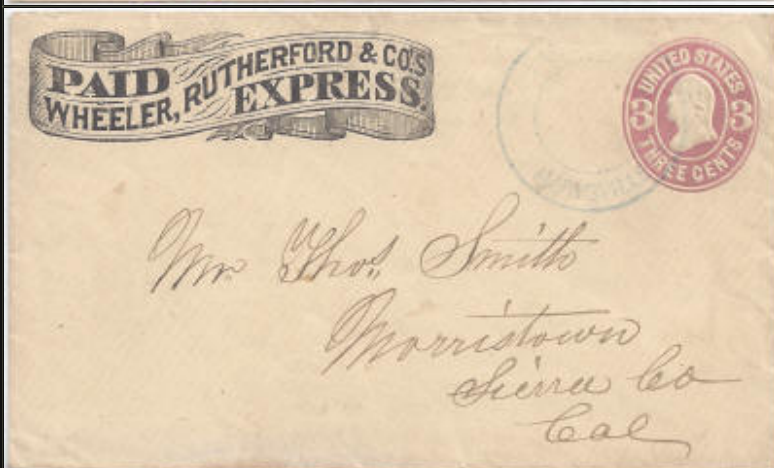 PAID
WHEELER, RUTHERFORD & CO'S
EXPRESS.
UNITED STATES
3 3
THREE CENTS
Mr Thos. Smith
Morristown
Sierra Co
Cal